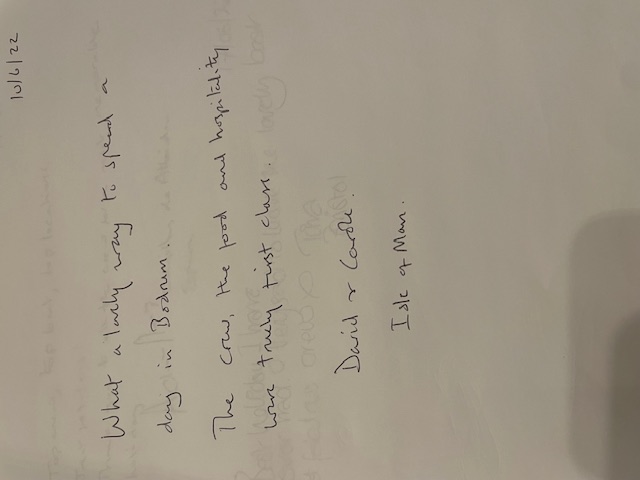 10/6/22
What a lovely way to spend a
day in Bodrum.
The crew, the food and hospitality
were truely first class.
David & Carole.
Isle of Man.